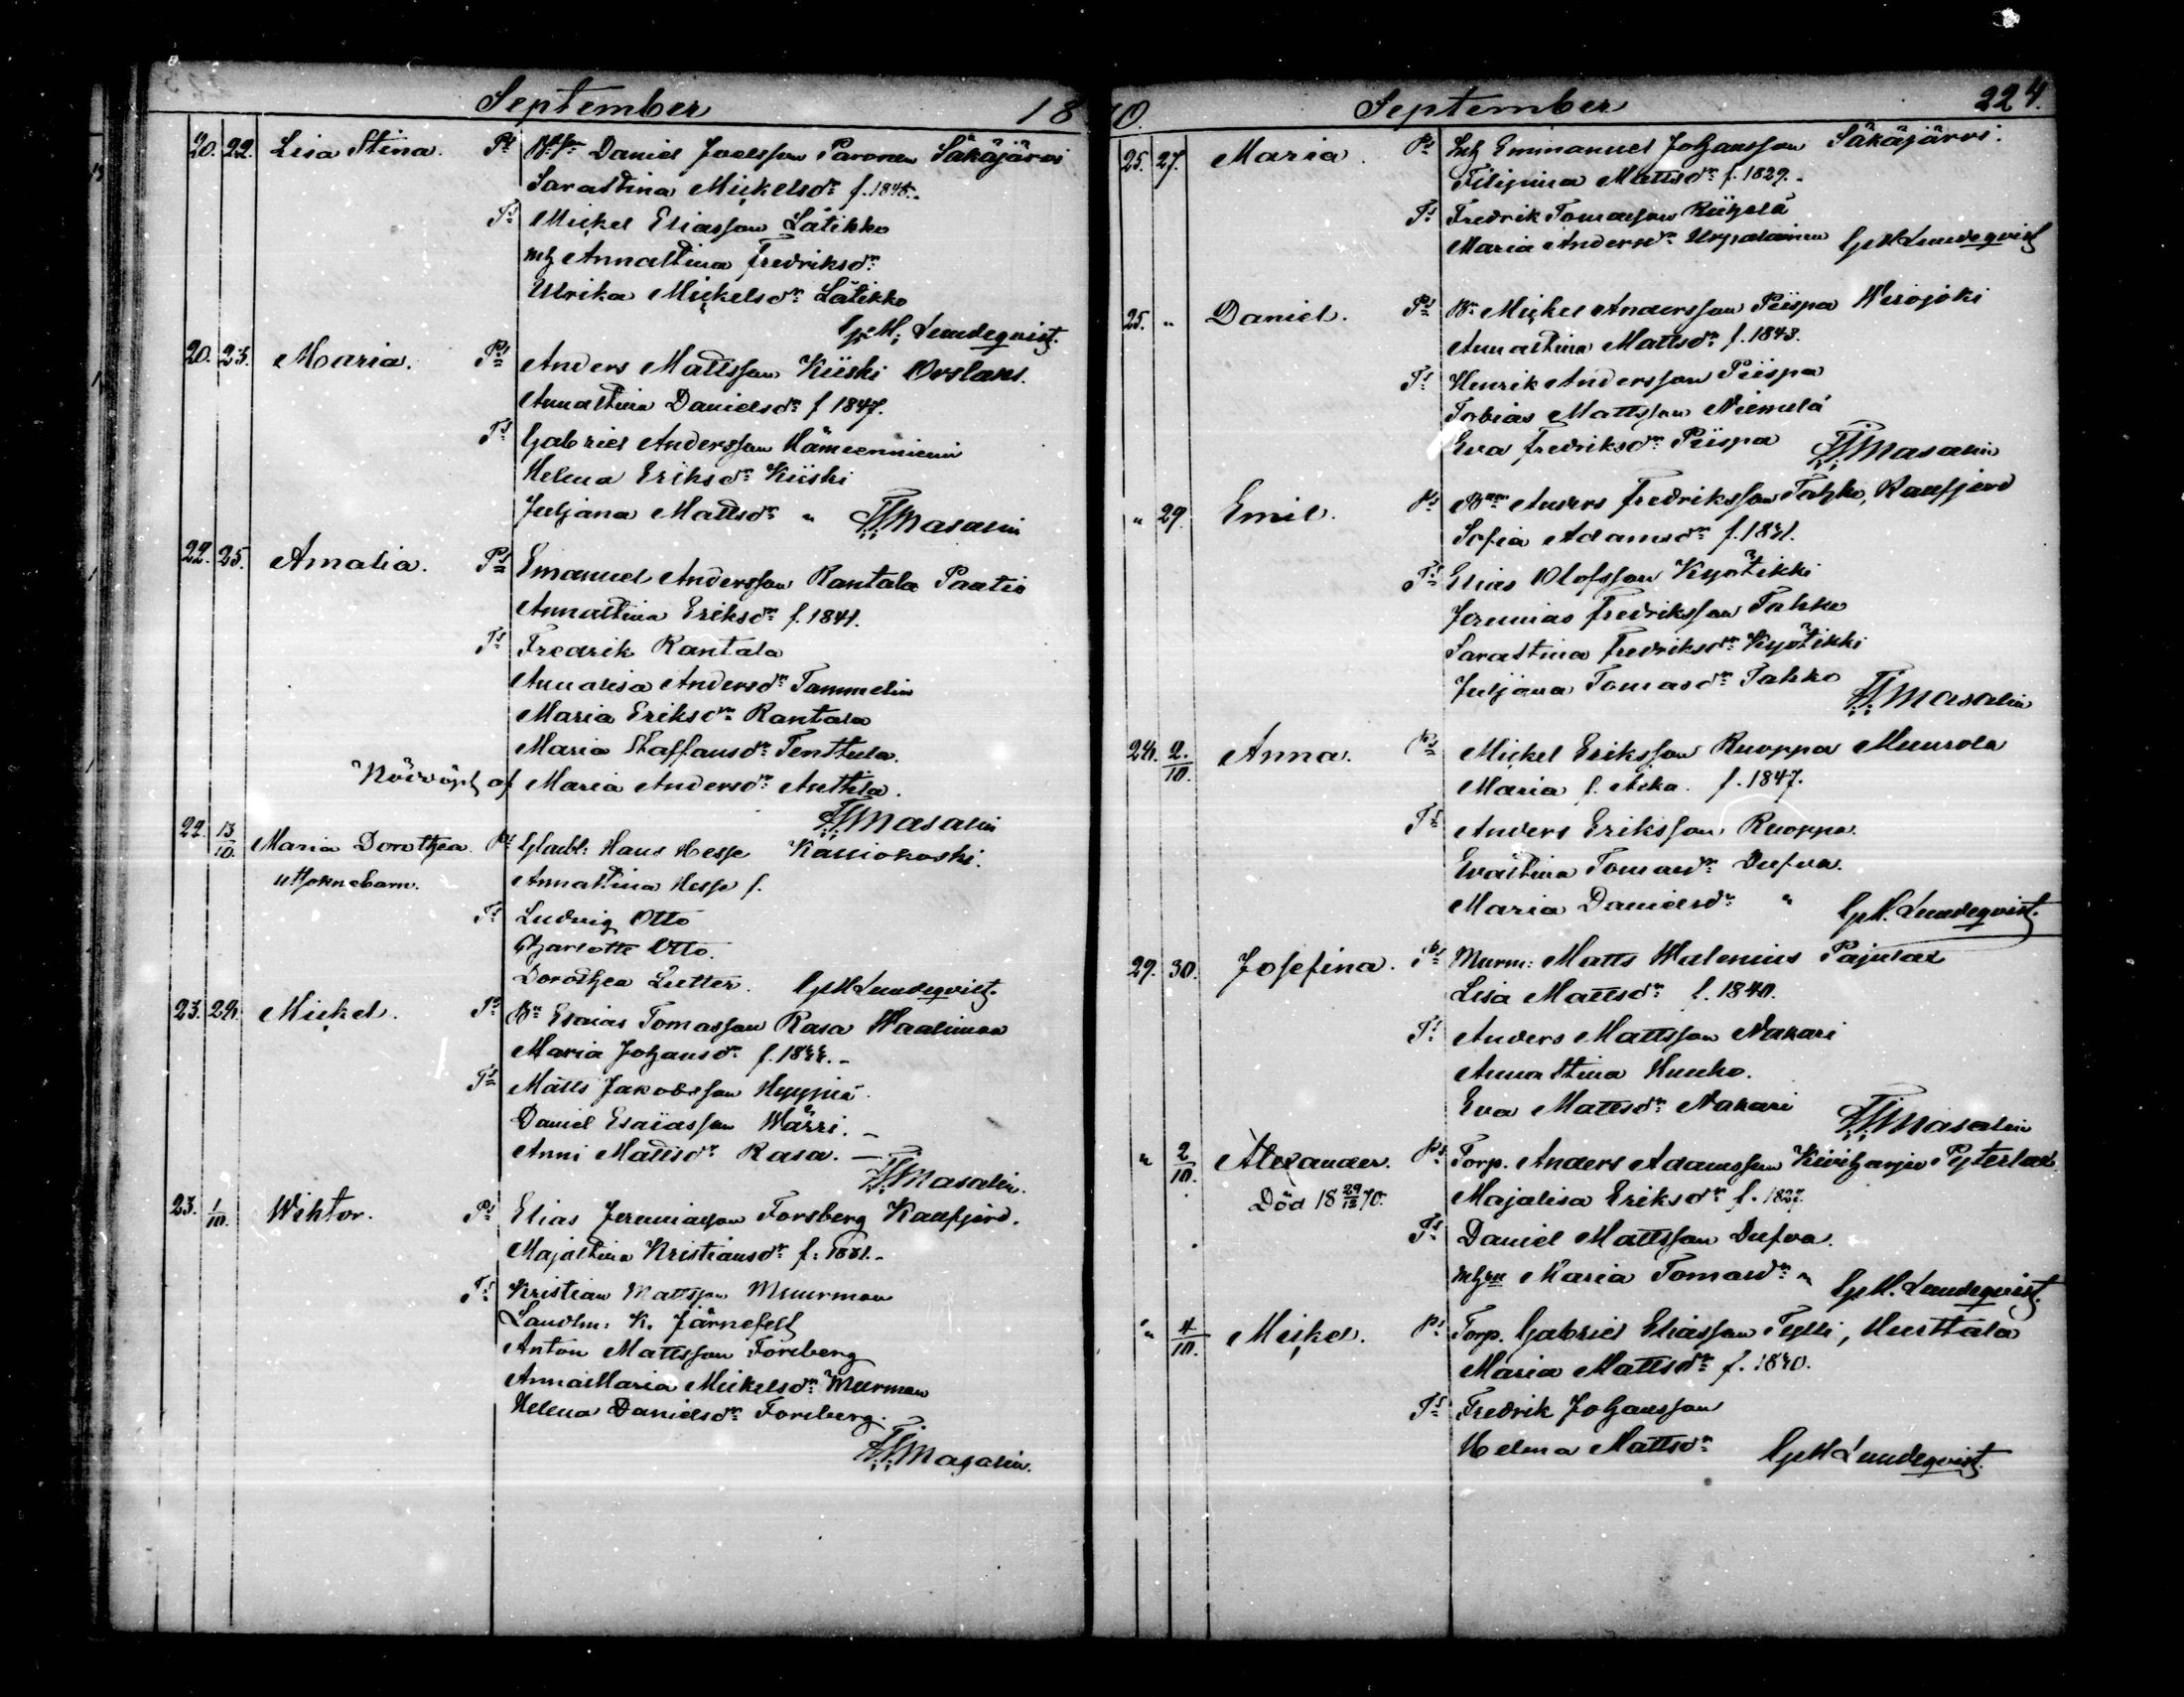 September 18
20. 22. Lisa Stina. Ps Daniel Joelsson Paronen Säkäjärvi
Sarastina Mickelsdr f. 1848.
Ts Mickel Eliasson Lätikko
Annastina Fredriksdr
Ulrika Mickelsdr Lätikko
G. M. Lundeqvist.
20. 23. Maria. Ps Anders Mattsson Kiiski Orslaks.
Annastina Danielsdr f 1847.
Ts Gabriel Andersson Hämeenniemi
Helena Eriksdr Kiiski
Juljana Mattsdr " Masalin
22. 25. Amalia. Ps Emanuel Andersson Rantala Paatio
Annastina Eriksdr f. 1841.
Ts Fredrik Rantala
Annalisa Andersdr Tammelin
Maria Eriksdr Rantala
Maria Staffansdr Tenttula.
Nöddöpt af Maria Andersdr Anttila.
Masalin
22. 13/10. Maria Dorothea. Ps Hans Hesse Kaukoski.
Annastina Hesse f.
Ts Ludvig Otto
Charlotte Otto.
Dorothea Lutter. G. M. Lundeqvist.
23. 24. Mickel. Ps Bn Esaias Tomasson Rasa Waalimaa
Maria Johansdr f. 1844.
Ts Matts Jakobsson Hyyppiä.
Daniel Esaiasson Wärri.
Anni Mattsdr Rasa. Masalin.
23. 1/10. Wihtor. Ps Elias Jeremiasson Forsberg Kaufjerd.
Majastina Kristiansdr f.
Ts Kristian Mattsson Muurman
Landtm. K. Järnefelt
Anton Mattsson Forsberg
Anna Maria Mickelsdr Murman
Helena Danielsdr Forsberg.
Masalin.
70. September 224.
25. 27. Maria. Ps Emmanuel Johansson Säkäjärvi.
Filipina Mattsdr f. 1829.
Ts Fredrik Tomasson Riihelä
Maria Andersdr Urpalainen G. M. Lundeqvist
25. " Daniel. Ps Bn Mickel Andersson Piispa Wirojoki
Annastina Mattsdr f. 1843.
Ts Henrik Andersson Piispa
Tobias Mattsson Niemelä
Eva Fredriksdr Piispa Masalin
" 29. Emil. Ps Anders Fredriksson Tahko, Kaufjerd
Sofia Adamsdr f. 1841.
Ts Elias Olofsson Kyötikki
Jeremias Fredriksson Tahko
Sarastina Fredriksdr Kyötikki
Juljana Tomasdr Tahko Masalin
24. 2/10. Anna. Ps Mickel Eriksson Ruoppa Muurola
Maria f. Aika. f. 1847.
Ts Anders Eriksson Ruoppa.
Evastina Tomasdr Dufva.
Maria Danielsdr " G. M. Lundeqvist.
29. 30. Josefina. Ps Murm: Matts Walenius Pajulax
Lisa Mattsdr f. 1840.
Ts Anders Mattsson Nakari
Anna Stina Hunko.
Eva Mattsdr Nakari Masalin
" 2/10. Alexander. Ps Torp. Anders Adamsson Kiviharju Pyterlax
Död 18 29/12 70. Majalisa Eriksdr f. 1827.
Ts Daniel Mattsson Dufva.
Maria Tomasdr " G. M. Lundeqvist.
" 4/10. Mickel. Ps Torp. Gabriel Eliasson Tylli, Hurttala
Maria Mattsdr f. 1840.
Ts Fredrik Johansson
Helena Mattsdr G. M. Lundeqvist.